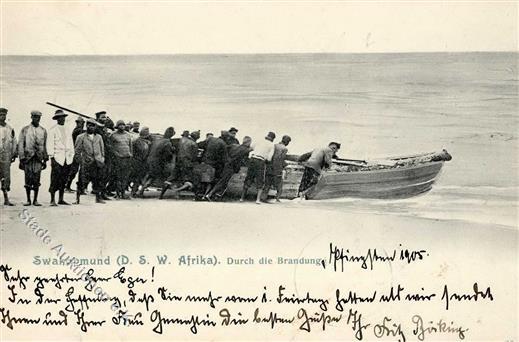 Swakopmund (D. S. W. Afrika). Durch die Brandung.
Pfingsten 1905
Sehr geehrter Herr !
In der Hoffnung, daß Sie mehr vom 1. Feiertag hatten als wir sendet
Ihnen und Ihrer Frau Gemahlin die besten Grüße Ihr Fritz